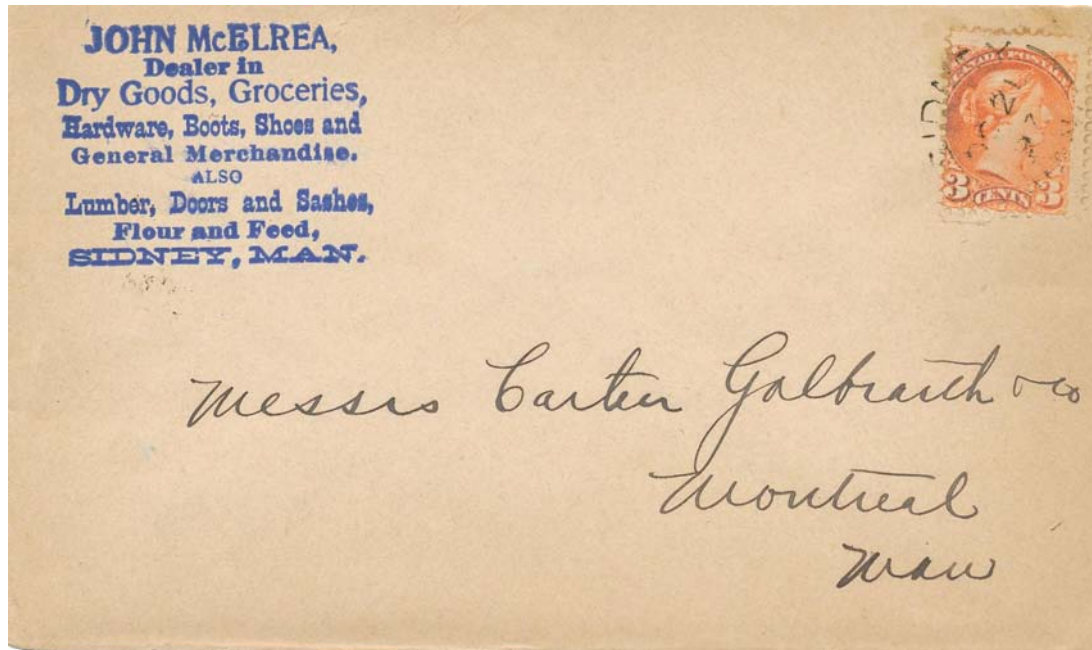 JOHN McELREA,
Dealer in
Dry Goods, Groceries,
Hardware, Boots, Shoes and
General Merchandise.
ALSO
Lumber, Doors and Sashes,
Flour and Feed,
SIDNEY, MAN.
CANADA POSTAGE
SIDNEY
3 CENTS 3
Messrs Carter Galbraith & Co
Montreal
Man